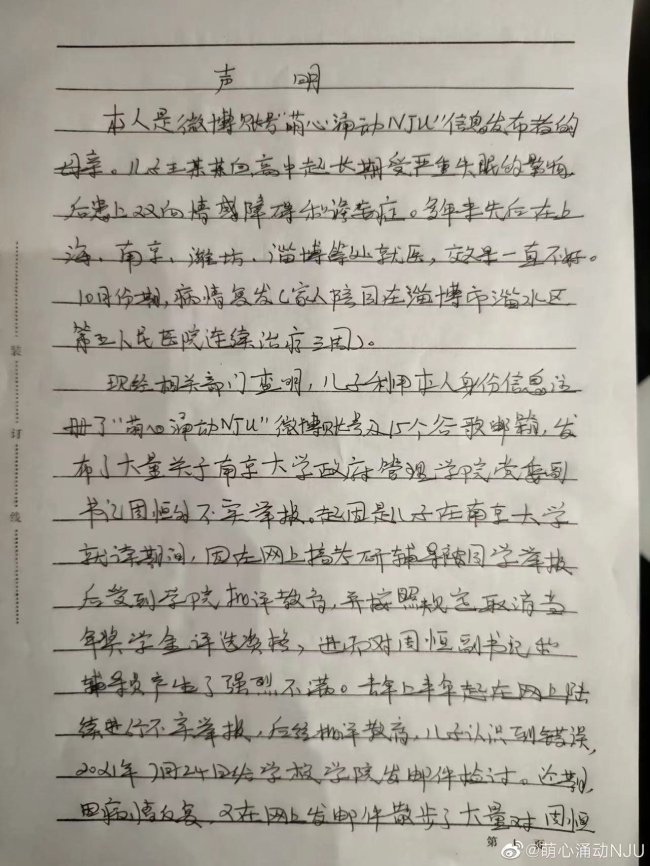 声 明
本人是微博账号"萌心涌动NJU"信息发布者的
母亲。儿子王某某自高中起长期受严重失眠的影响,
后患上双向情感障碍和 症。多年来先后在上
海、南京、潍坊、淄博等处就医,效果一直不好。
10月份期,病情复发(家人陪同在淄博市淄水区
第五人民医院连续治疗三周)。
现经相关部门查明,儿子利用本人身份信息注
册了"萌心涌动NJU"微博账号及15个谷歌邮箱,发
布了大量关于南京大学政府管理学院党委副
书记周恒的不实举报。起因是儿子在南京大学
就读期间,因在网上搞考研辅导被同学举报
后受到学院批评教育,并按照规定取消当
年奖学金评选资格,进而对周恒副书记的
辅导员产生了强烈不满。去年上半年起在网上陆
续进行不实举报,后经批评教育,儿子认识到错误,
2021年7月24日给学校学院发邮件检讨。近期,
因病情反复,又在网上发邮件散步了大量对周恒
装 订 线
第 1 页
@萌心涌动NJU